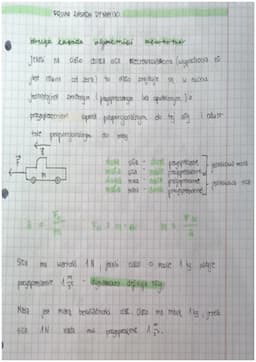 DRUGA ZASADA DYNAMIKI
druga zasada dynamiki newtona
Jeżeli na ciało działa siła niezrównoważona (wypadkowa nie
jest równa od zera) to ciało znajduje się w ruchu
jednostajnie zmiennym (przyspieszonym lub opóźnionym) z
przyspieszeniem wprost proporcjonalnym do tej siły i odwrot
nie proporcjonalnym do masy
F
m
duża siła - duże przyspieszenie
mała siła - małe przyspieszenie
duża masa - małe przyspieszenie
mała masa - duże przyspieszenie
Siła ma wartość 1N, jeżeli ciału o masie 1 kg nadaje
przyspieszenie 1 m/s² -
Masa jest miarą bezwładności ciał. Ciało ma masę 1 kg, jeżeli
siła 1N nada mu przyspieszenie 1 m/s².